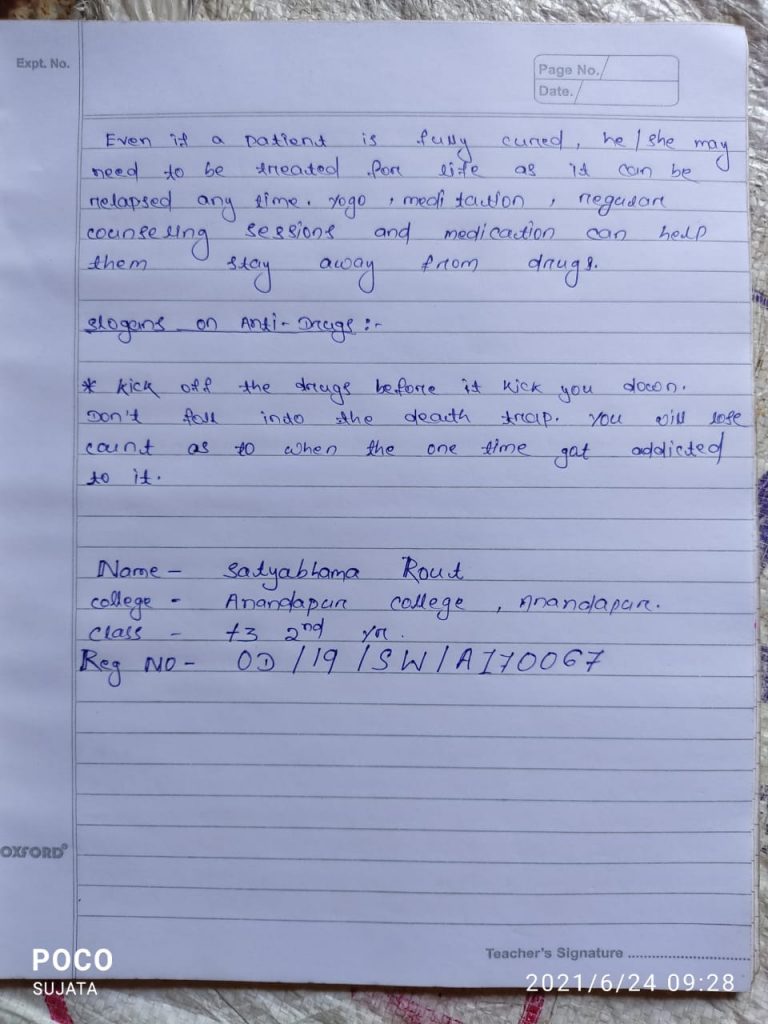 Expt. No.
Page No.
Date.
Even if a patient is fully cured, he / she may
need to be treated for life as it can be
relapsed any time. yogo , meditation , regular
counseling sessions and medication can help
them stay away from drugs.
slogans on Anti-Drugs :-
* Kick off the drugs before it kick you down.
Don't fall indo the death trap. you will lose
count as to when the one time gat addicted
to it.
Name - Satyabhama Rout
college - Anandapur college , Anandapur.
Class - +3 2nd yr.
Reg NO - OD / 19 / SW / AI70067
OXFORD
Teacher's Signature ........................
POCO
SUJATA
2021/6/24 09:28